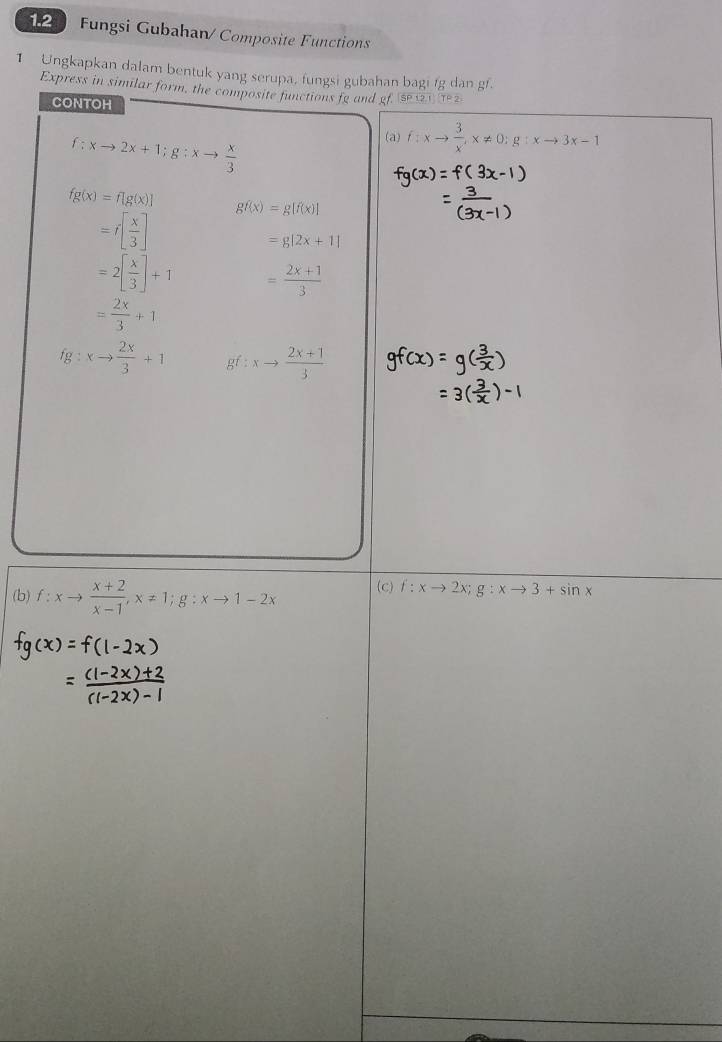 1.2 Fungsi Gubahan/ Composite Functions
1 Ungkapkan dalam bentuk yang serupa, fungsi gubahan bagi fg dan gf.
Express in similar form, the composite functions fg and gf. SP 1.2.1 TP 2
CONTOH
f : x → 2x + 1; g : x → x/3
fg(x) = f[g(x)]
= f[x/3]
= 2[x/3] + 1
= 2x/3 + 1
fg : x → 2x/3 + 1
gf(x) = g[f(x)]
= g[2x + 1]
= (2x + 1)/3
gf : x → (2x + 1)/3
(a) f : x → 3/x, x ≠ 0; g : x → 3x − 1
fg(x) = f(3x-1)
= 3/(3x-1)
gf(x) = g(3/x)
= 3(3/x)-1
(b) f : x → (x + 2)/(x − 1), x ≠ 1; g : x → 1 − 2x
fg(x) = f(1-2x)
= ((1-2x)+2)/((1-2x)-1)
(c) f : x → 2x; g : x → 3 + sin x